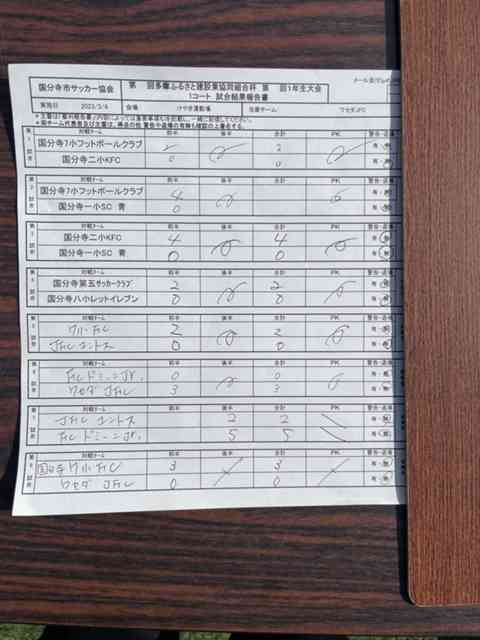 国分寺市サッカー協会 第 回多摩ふるさと建設業協同組合杯 第 回1年生大会
1コート 試合結果報告書
実施日 2023/3/4 会場 けやき運動場 当番チーム ワセダJFC
第1試合 対戦チーム 前半 後半 合計 PK 警告・退場
国分寺7小フットボールクラブ 2 2 有・無
国分寺二小KFC 0 0 有・無
第2試合 対戦チーム 前半 後半 合計 PK 警告・退場
国分寺7小フットボールクラブ 4 有・無
国分寺一小SC 青 0 有・無
第3試合 対戦チーム 前半 後半 合計 PK 警告・退場
国分寺二小KFC 4 4 有・無
国分寺一小SC 青 0 0 有・無
第4試合 対戦チーム 前半 後半 合計 PK 警告・退場
国分寺第五サッカークラブ 2 2 有・無
国分寺八小レットイレブン 0 0 有・無
第5試合 対戦チーム 前半 後半 合計 PK 警告・退場
7小FC 2 2 有・無
JFCコントス 0 0 有・無
第6試合 対戦チーム 前半 後半 合計 PK 警告・退場
FCドミーニJr. 0 0 有・無
ワセダ JFC 3 3 有・無
第7試合 対戦チーム 前半 後半 合計 PK 警告・退場
JFC コントス 2 2 有・無
FC ドミーニJr. 5 5 有・無
第8試合 対戦チーム 前半 後半 合計 PK 警告・退場
国分寺7小FC 3 3 有・無
ワセダ JFC 0 0 有・無